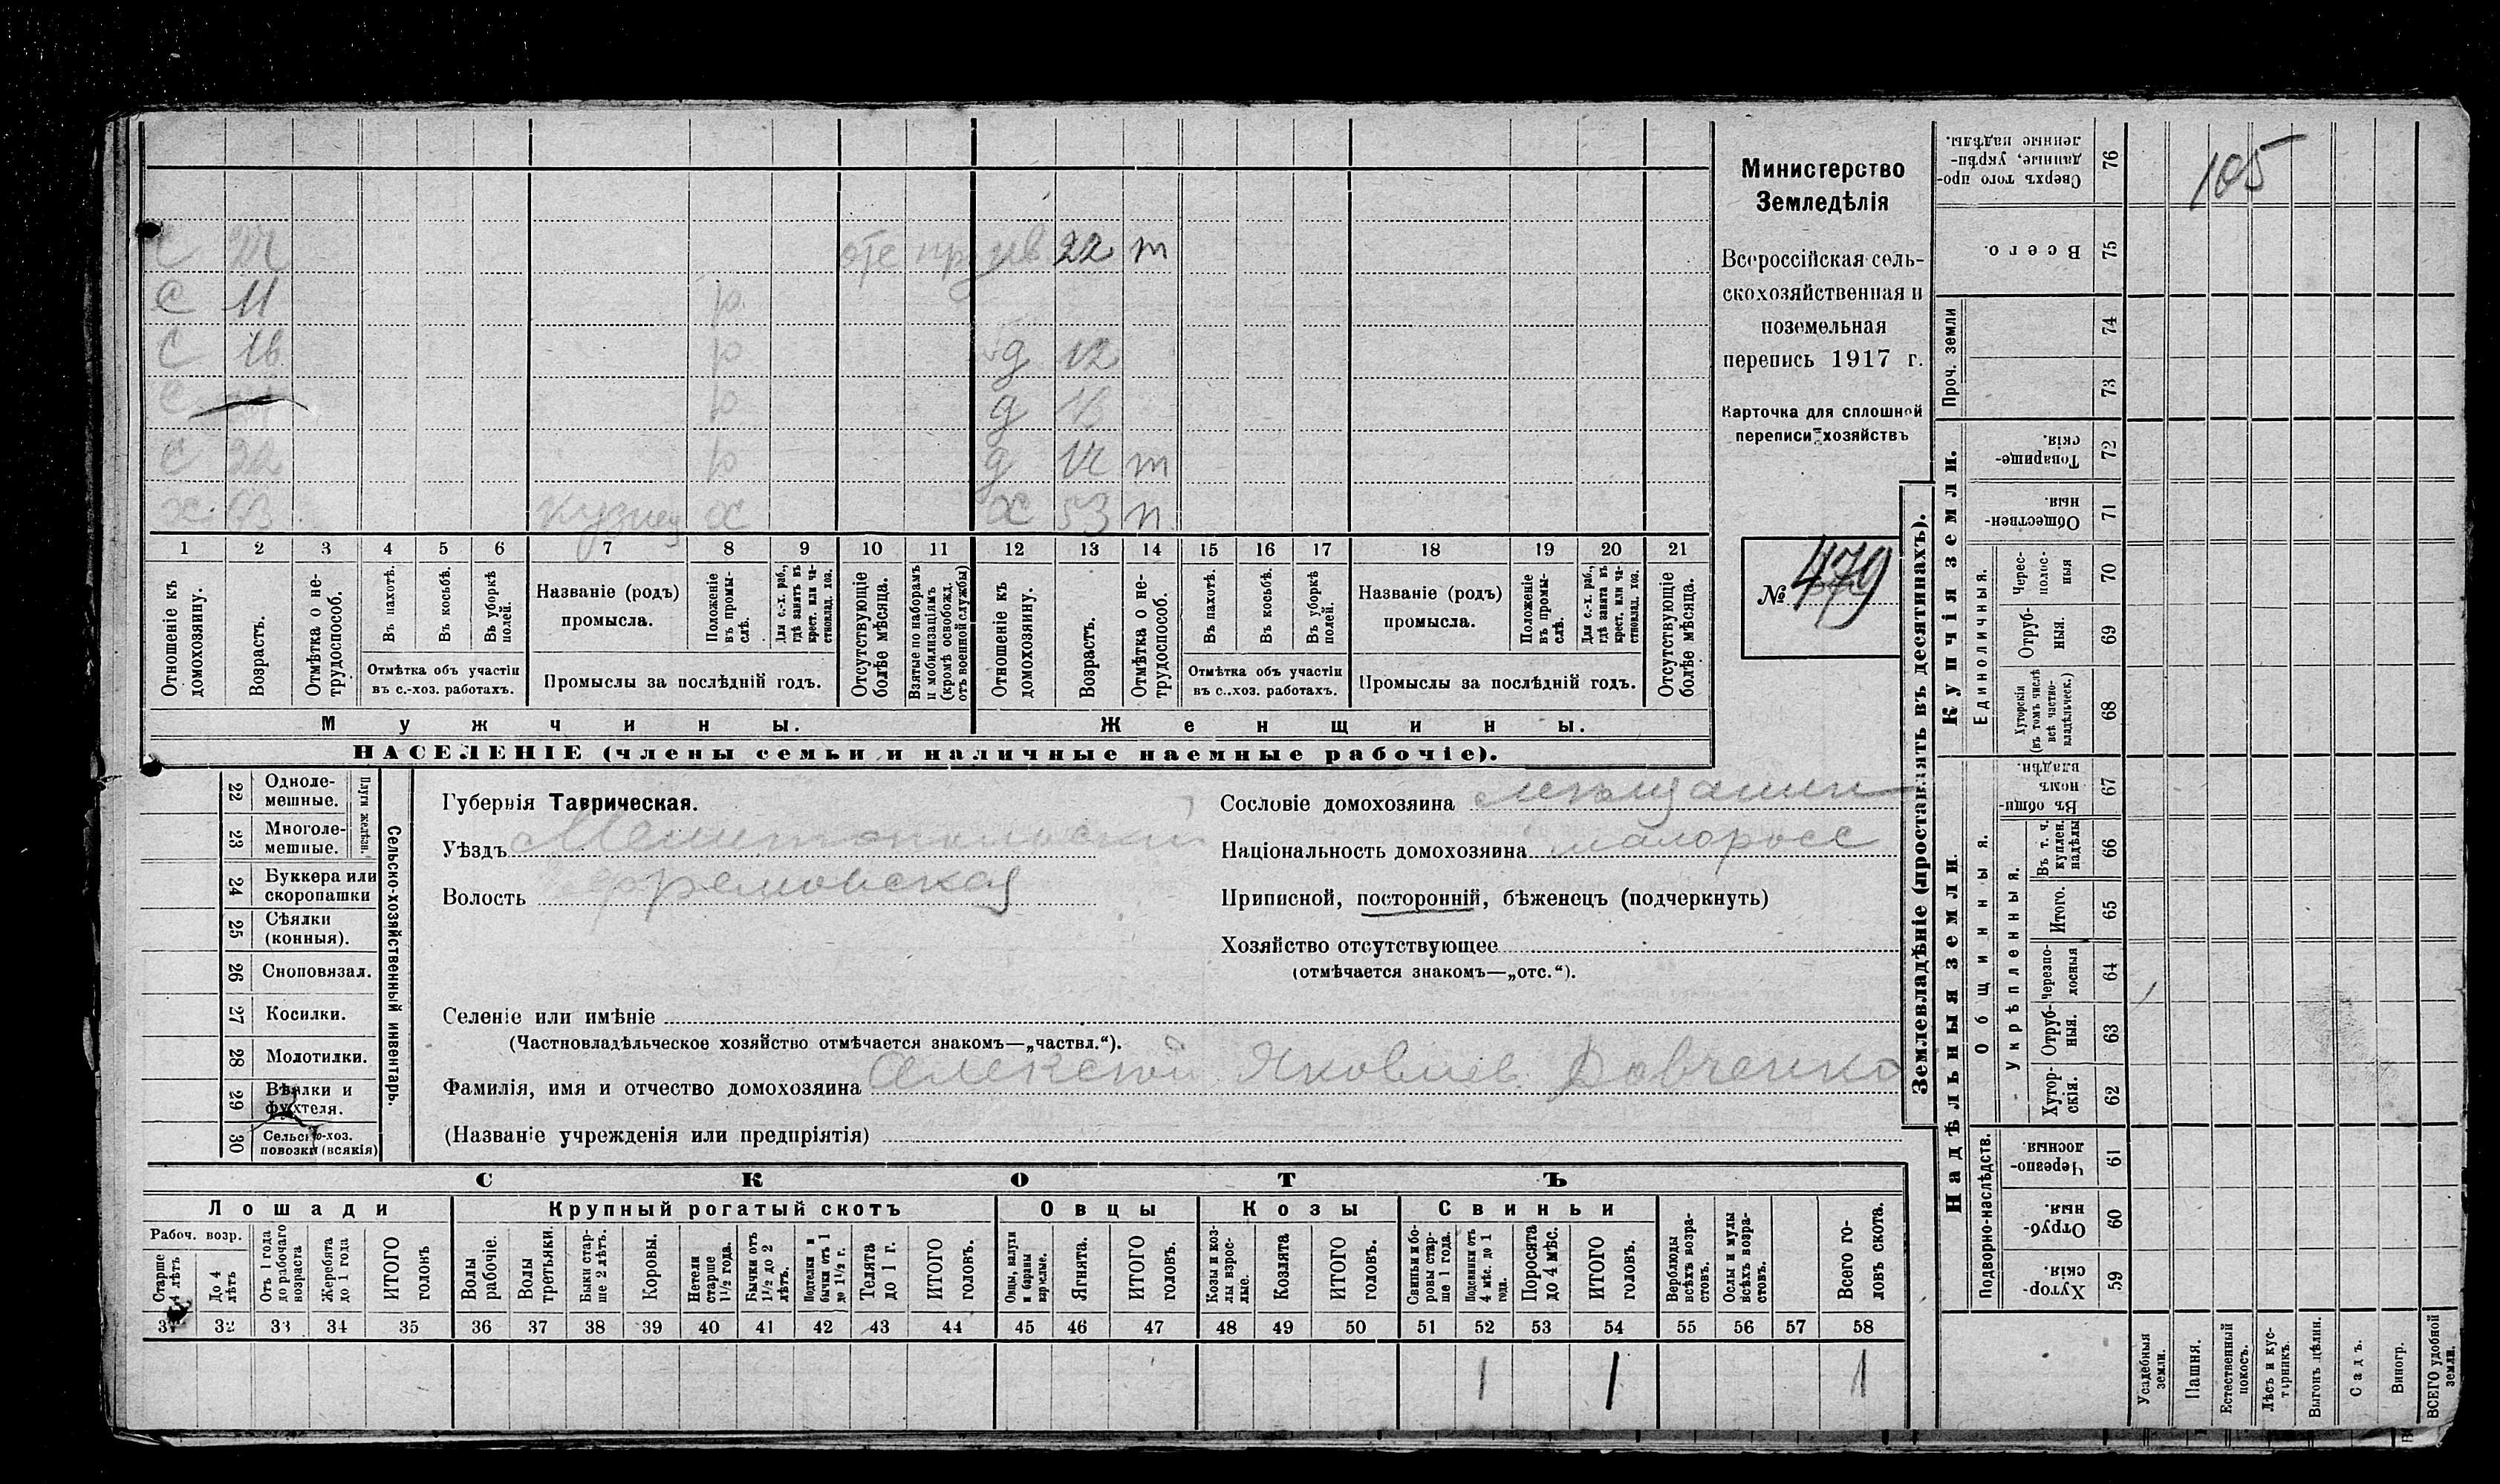 С 11 р
С 16 р д 12
С р д
С 22 р д т
х кузнец х х 53 п
22 т
1 2 3 4 5 6 7 8 9 10 11 12 13 14 15 16 17 18 19 20 21
Отношеніе къ домохозяину.
Возрастъ.
Отмѣтка о нетрудоспособ.
Въ пахотѣ.
Въ косьбѣ.
Въ уборкѣ полей.
Отмѣтка объ участіи въ с.-хоз. работахъ.
Названіе (родъ) промысла.
Положеніе въ промыслѣ.
Для с.-х. раб., гдѣ занятъ въ крест. или частновлад. хоз.
Промыслы за послѣдній годъ.
Отсутствующіе болѣе мѣсяца.
Взятые по наборамъ и мобилизаціямъ (кромѣ освобожд. отъ военной службы)
Отношеніе къ домохозяину.
Возрастъ.
Отмѣтка о нетрудоспособ.
Въ пахотѣ.
Въ косьбѣ.
Въ уборкѣ полей.
Отмѣтка объ участіи въ с..хоз. работахъ.
Названіе (родъ) промысла.
Положеніе въ промыслѣ.
Для с.-х. раб., гдѣ занята въ крест. или частновлад. хоз.
Промыслы за послѣдній годъ.
Отсутствующіе болѣе мѣсяца.
Мужчины.
Женщины.
НАСЕЛЕНІЕ (члены семьи и наличные наемные рабочіе).
Министерство
Земледѣлія
Всероссійская сель-
скохозяйственная и
поземельная
перепись 1917 г.
Карточка для сплошной
переписи хозяйствъ
№ 479
22 Однолемешные.
23 Многолемешные.
Плуги желѣзн.
24 Буккера или скоропашки
25 Сѣялки (конныя).
26 Сноповязал.
27 Косилки.
28 Молотилки.
29 Вѣялки и фухтеля.
30 Сельско-хоз. повозки (всякія)
Сельско-хозяйственный инвентарь.
Губернія Таврическая.
Уѣздъ Мелитопольский
Волость Ефремовская
Сословіе домохозяина мещанин
Національность домохозяина малоросс
Приписной, посторонній, бѣженецъ (подчеркнуть)
Хозяйство отсутствующее
(отмѣчается знакомъ—„отс.“).
Селеніе или имѣніе
(Частновладѣльческое хозяйство отмѣчается знакомъ—„частвл.“).
Фамилія, имя и отчество домохозяина Алексей Яковлев Довченко
(Названіе учрежденія или предпріятія)
СКОТЪ
Лошади
Крупный рогатый скотъ
Овцы
Козы
Свиньи
Рабоч. возр.
Старше 4 лѣтъ
До 4 лѣтъ
Отъ 1 года до рабочаго возраста
Жеребята до 1 года
ИТОГО головъ
Волы рабочіе.
Волы третьяки.
Быки старше 2 лѣтъ.
Коровы.
Нетели старше 1½ года.
Бычки отъ 1½ до 2 лѣтъ.
Подтелки и бычки отъ 1 до 1½ г.
Телята до 1 г.
ИТОГО головъ.
Овцы, валухи и бараны взрослые.
Ягнята.
ИТОГО головъ.
Козы и козлы взрослые.
Козлята
ИТОГО головъ.
Свиньи и боровы старше 1 года.
Подсвинки отъ 4 мѣс. до 1 года.
Поросята до 4 мѣс.
ИТОГО головъ.
Верблюды всѣхъ возрастовъ.
Ослы и мулы всѣхъ возрастовъ.
Всего головъ скота.
31 32 33 34 35 36 37 38 39 40 41 42 43 44 45 46 47 48 49 50 51 52 53 54 55 56 57 58
1 1 1
Землевладѣніе (проставлять въ десятинахъ).
Купчія земли.
Надѣльныя земли.
Проч. земли
Единоличныя.
Общинныя.
Укрѣпленныя.
Подворно-наслѣдств.
76 Сверхъ того проданные, укрѣпленные надѣлы.
105
75 Всего.
74
73
72 Товарищескія.
71 Общественныя.
70 Чересполосныя
69 Отрубныя.
68 Хуторскія (въ томъ числѣ всѣ частновладѣльческ.)
67 Въ общинномъ владѣн.
66 Въ т. ч. куплен. надѣлы
65 Итого.
64 Черезполосныя
63 Отрубныя.
62 Хуторскія.
61 Черезполосныя
60 Отрубныя.
59 Хуторскія.
Усадебныя земли.
Пашня.
Естественный покосъ.
Лѣсъ и кустарникъ.
Выгонъ цѣлин.
Садъ.
Виногр.
ВСЕГО удобной земли.